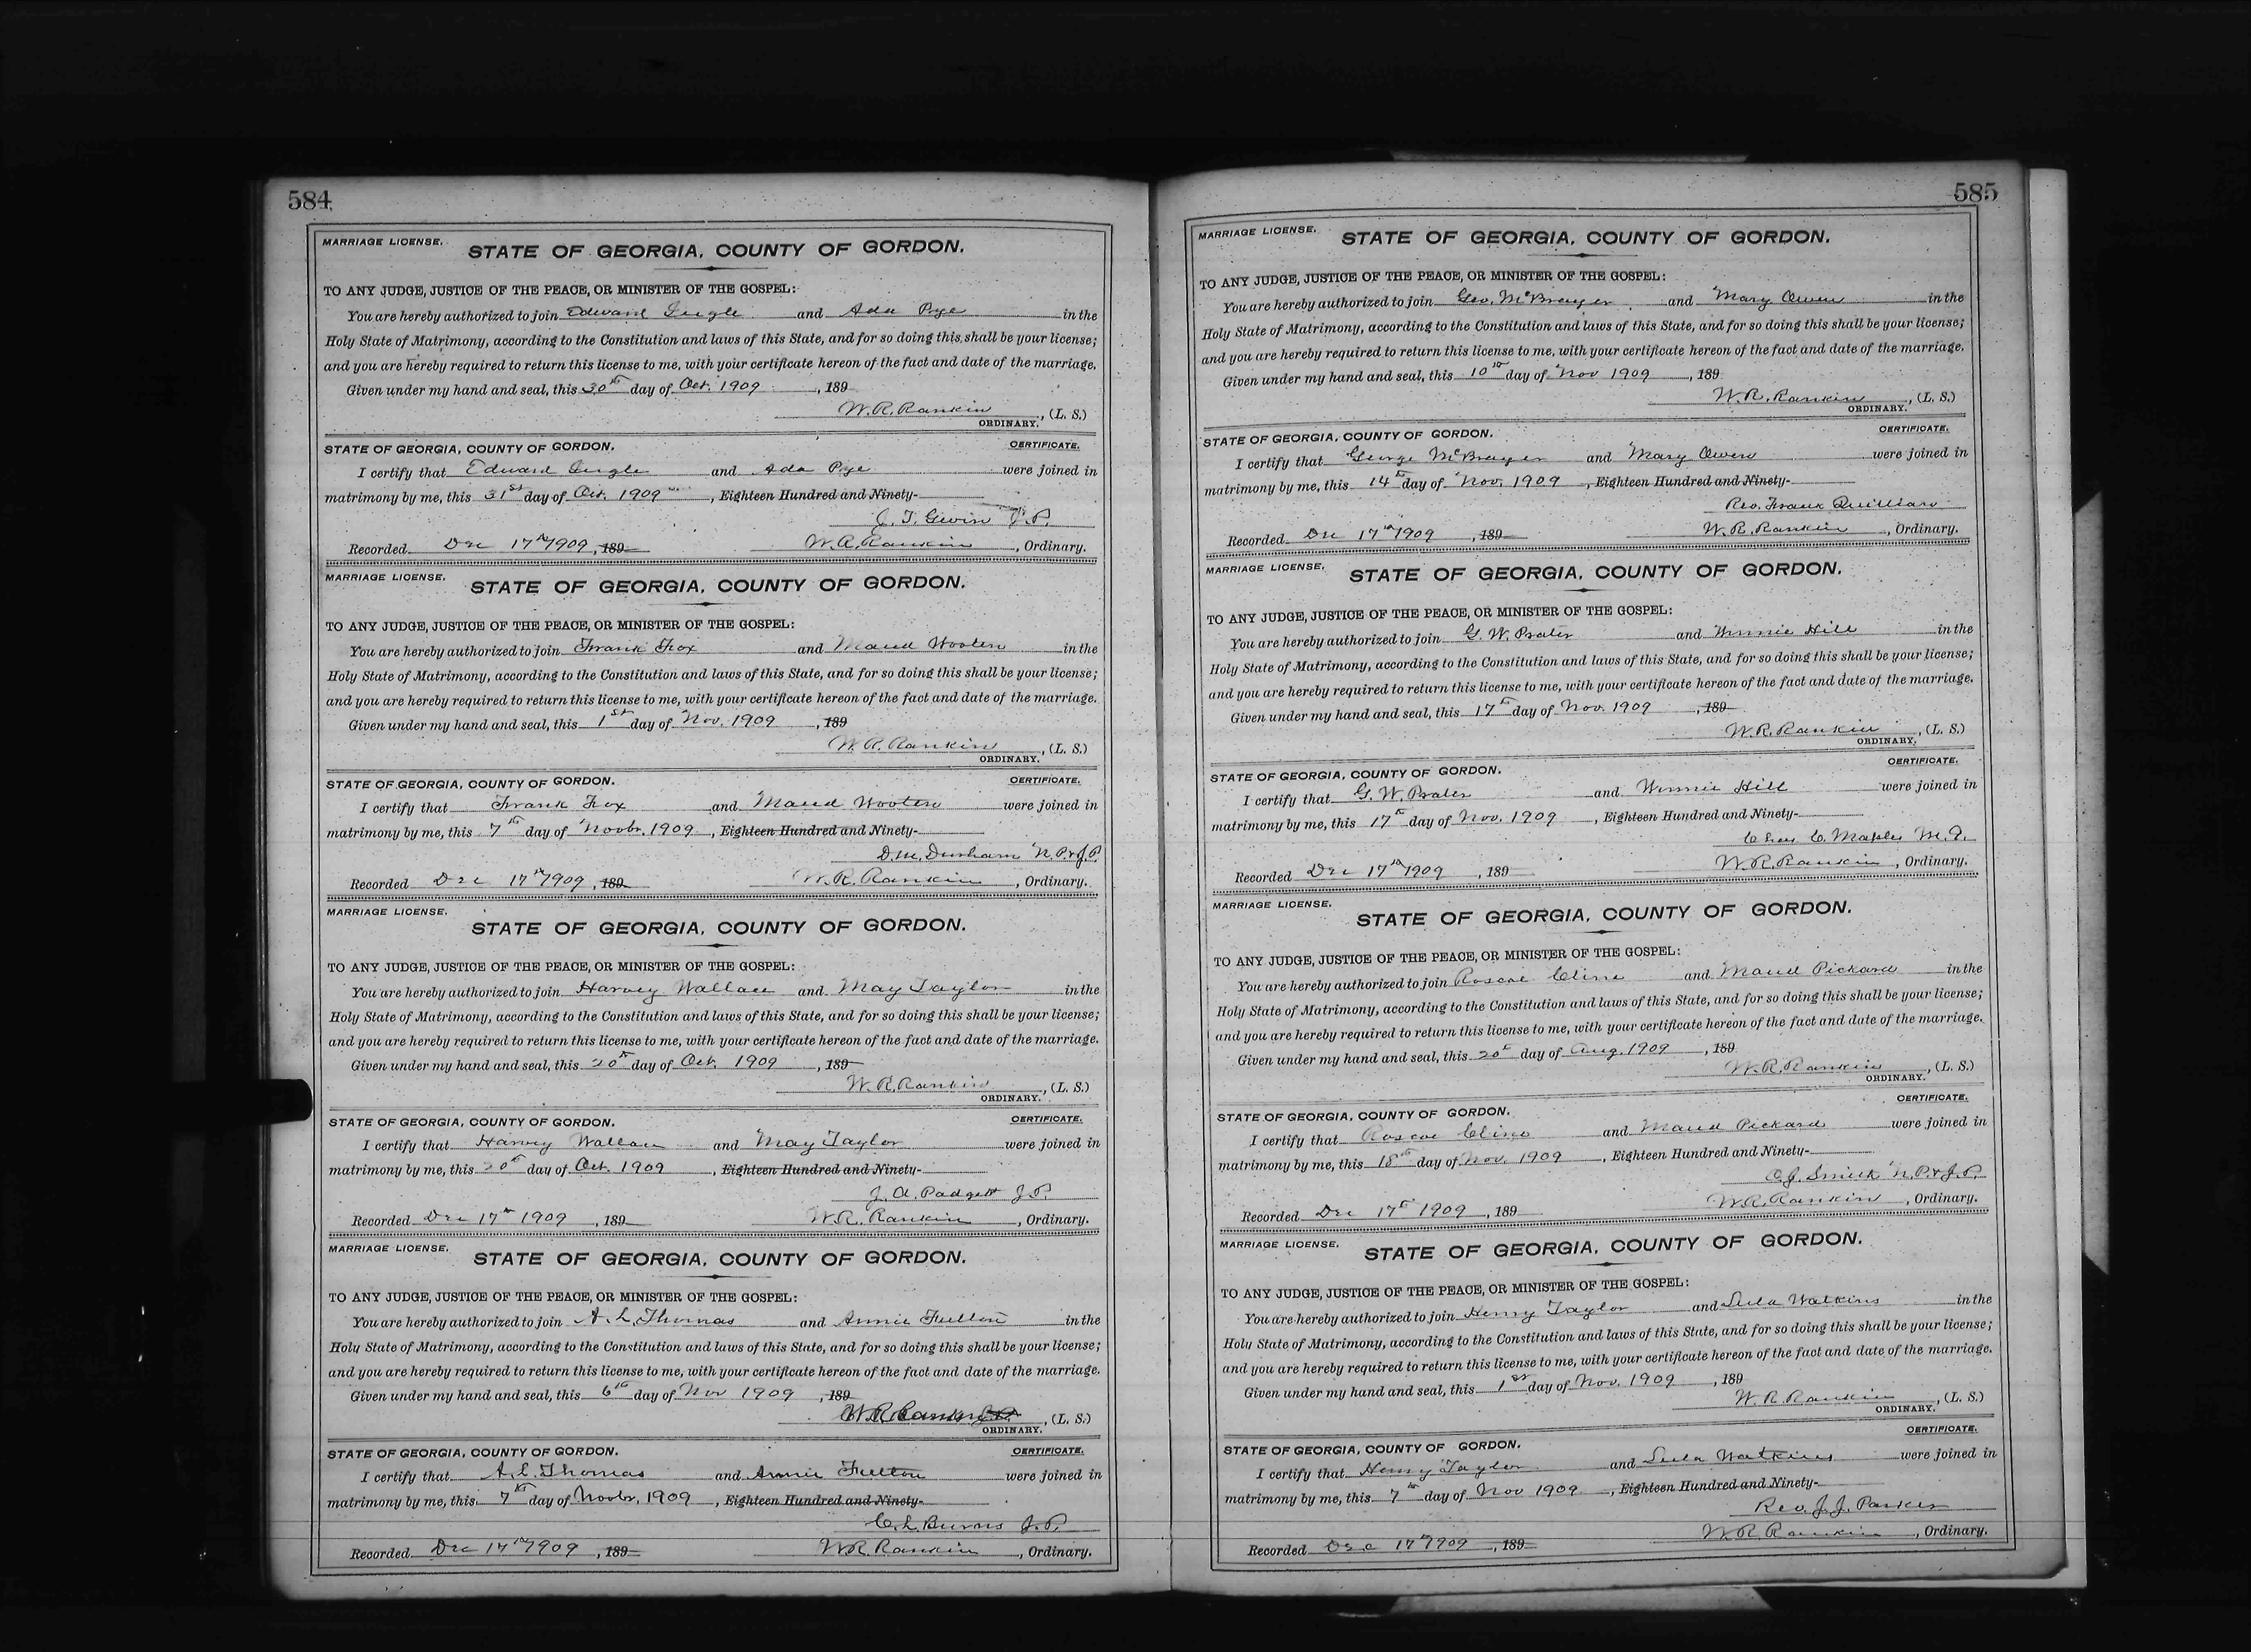 584
MARRIAGE LICENSE.
STATE OF GEORGIA, COUNTY OF GORDON.
TO ANY JUDGE, JUSTICE OF THE PEACE, OR MINISTER OF THE GOSPEL:
You are hereby authorized to join Edward and Ada Pye in the
Holy State of Matrimony, according to the Constitution and laws of this State, and for so doing this shall be your license;
and you are hereby required to return this license to me, with your certificate hereon of the fact and date of the marriage.
Given under my hand and seal, this 30th day of Oct. 1909, 189
W. R. Rankin, (L. S.)
ORDINARY.
STATE OF GEORGIA, COUNTY OF GORDON. CERTIFICATE.
I certify that Edward and Ada Pye were joined in
matrimony by me, this 31st day of Oct. 1909, Eighteen Hundred and Ninety-
J. T. J. P.
Recorded Dec 17th 1909, 189 W. R. Rankin, Ordinary.
MARRIAGE LICENSE.
STATE OF GEORGIA, COUNTY OF GORDON.
TO ANY JUDGE, JUSTICE OF THE PEACE, OR MINISTER OF THE GOSPEL:
You are hereby authorized to join Frank Fox and Maud Wooten in the
Holy State of Matrimony, according to the Constitution and laws of this State, and for so doing this shall be your license;
and you are hereby required to return this license to me, with your certificate hereon of the fact and date of the marriage.
Given under my hand and seal, this 1st day of Nov. 1909, 189
W. R. Rankin, (L. S.)
ORDINARY.
STATE OF GEORGIA, COUNTY OF GORDON. CERTIFICATE.
I certify that Frank Fox and Maud Wooten were joined in
matrimony by me, this 7th day of Novbr. 1909, Eighteen Hundred and Ninety-
D. M. Durham N. P. & J. P.
Recorded Dec 17th 1909, 189 W. R. Rankin, Ordinary.
MARRIAGE LICENSE.
STATE OF GEORGIA, COUNTY OF GORDON.
TO ANY JUDGE, JUSTICE OF THE PEACE, OR MINISTER OF THE GOSPEL:
You are hereby authorized to join Harvey Wallace and May Taylor in the
Holy State of Matrimony, according to the Constitution and laws of this State, and for so doing this shall be your license;
and you are hereby required to return this license to me, with your certificate hereon of the fact and date of the marriage.
Given under my hand and seal, this 20th day of Oct. 1909, 189
W. R. Rankin, (L. S.)
ORDINARY.
STATE OF GEORGIA, COUNTY OF GORDON. CERTIFICATE.
I certify that Harvey Wallace and May Taylor were joined in
matrimony by me, this 20th day of Oct. 1909, Eighteen Hundred and Ninety-
J. A. Padgett J. P.
Recorded Dec 17th 1909, 189 W. R. Rankin, Ordinary.
MARRIAGE LICENSE.
STATE OF GEORGIA, COUNTY OF GORDON.
TO ANY JUDGE, JUSTICE OF THE PEACE, OR MINISTER OF THE GOSPEL:
You are hereby authorized to join A. L. Thomas and Annie Fulton in the
Holy State of Matrimony, according to the Constitution and laws of this State, and for so doing this shall be your license;
and you are hereby required to return this license to me, with your certificate hereon of the fact and date of the marriage.
Given under my hand and seal, this 6th day of Nov 1909, 189
W. R. Rankin, (L. S.)
ORDINARY.
STATE OF GEORGIA, COUNTY OF GORDON. CERTIFICATE.
I certify that A. L. Thomas and Annie Fulton were joined in
matrimony by me, this 7th day of Novbr. 1909, Eighteen Hundred and Ninety-
C. L. Burns J. P.
Recorded Dec 17th 1909, 189 W. R. Rankin, Ordinary.
585
MARRIAGE LICENSE.
STATE OF GEORGIA, COUNTY OF GORDON.
TO ANY JUDGE, JUSTICE OF THE PEACE, OR MINISTER OF THE GOSPEL:
You are hereby authorized to join Geo. McBrayer and Mary Owen in the
Holy State of Matrimony, according to the Constitution and laws of this State, and for so doing this shall be your license;
and you are hereby required to return this license to me, with your certificate hereon of the fact and date of the marriage.
Given under my hand and seal, this 10th day of Nov 1909, 189
W. R. Rankin, (L. S.)
ORDINARY.
STATE OF GEORGIA, COUNTY OF GORDON. CERTIFICATE.
I certify that George McBrayer and Mary Owen were joined in
matrimony by me, this 14th day of Nov. 1909, Eighteen Hundred and Ninety-
Rev. Frank Quillian
Recorded Dec 17th 1909, 189 W. R. Rankin, Ordinary.
MARRIAGE LICENSE.
STATE OF GEORGIA, COUNTY OF GORDON.
TO ANY JUDGE, JUSTICE OF THE PEACE, OR MINISTER OF THE GOSPEL:
You are hereby authorized to join G. W. Prater and Winnie Hill in the
Holy State of Matrimony, according to the Constitution and laws of this State, and for so doing this shall be your license;
and you are hereby required to return this license to me, with your certificate hereon of the fact and date of the marriage.
Given under my hand and seal, this 17th day of Nov. 1909, 189
W. R. Rankin, (L. S.)
ORDINARY.
STATE OF GEORGIA, COUNTY OF GORDON. CERTIFICATE.
I certify that G. W. Prater and Winnie Hill were joined in
matrimony by me, this 17th day of Nov. 1909, Eighteen Hundred and Ninety-
Chas. C. Maples M. G.
Recorded Dec 17th 1909, 189 W. R. Rankin, Ordinary.
MARRIAGE LICENSE.
STATE OF GEORGIA, COUNTY OF GORDON.
TO ANY JUDGE, JUSTICE OF THE PEACE, OR MINISTER OF THE GOSPEL:
You are hereby authorized to join Roscoe Cline and Maud Pickard in the
Holy State of Matrimony, according to the Constitution and laws of this State, and for so doing this shall be your license;
and you are hereby required to return this license to me, with your certificate hereon of the fact and date of the marriage.
Given under my hand and seal, this 20th day of Aug. 1909, 189
W. R. Rankin, (L. S.)
ORDINARY.
STATE OF GEORGIA, COUNTY OF GORDON. CERTIFICATE.
I certify that Roscoe Cline and Maud Pickard were joined in
matrimony by me, this 18th day of Nov. 1909, Eighteen Hundred and Ninety-
O. J. Smith N. P. & J. P.
Recorded Dec 17th 1909, 189 W. R. Rankin, Ordinary.
MARRIAGE LICENSE.
STATE OF GEORGIA, COUNTY OF GORDON.
TO ANY JUDGE, JUSTICE OF THE PEACE, OR MINISTER OF THE GOSPEL:
You are hereby authorized to join Henry Taylor and Lula Watkins in the
Holy State of Matrimony, according to the Constitution and laws of this State, and for so doing this shall be your license;
and you are hereby required to return this license to me, with your certificate hereon of the fact and date of the marriage.
Given under my hand and seal, this 1st day of Nov. 1909, 189
W. R. Rankin, (L. S.)
ORDINARY.
STATE OF GEORGIA, COUNTY OF GORDON. CERTIFICATE.
I certify that Henry Taylor and Lula Watkins were joined in
matrimony by me, this 7th day of Nov 1909, Eighteen Hundred and Ninety-
Rev. J. J. Parker
Recorded Dec 17th 1909, 189 W. R. Rankin, Ordinary.